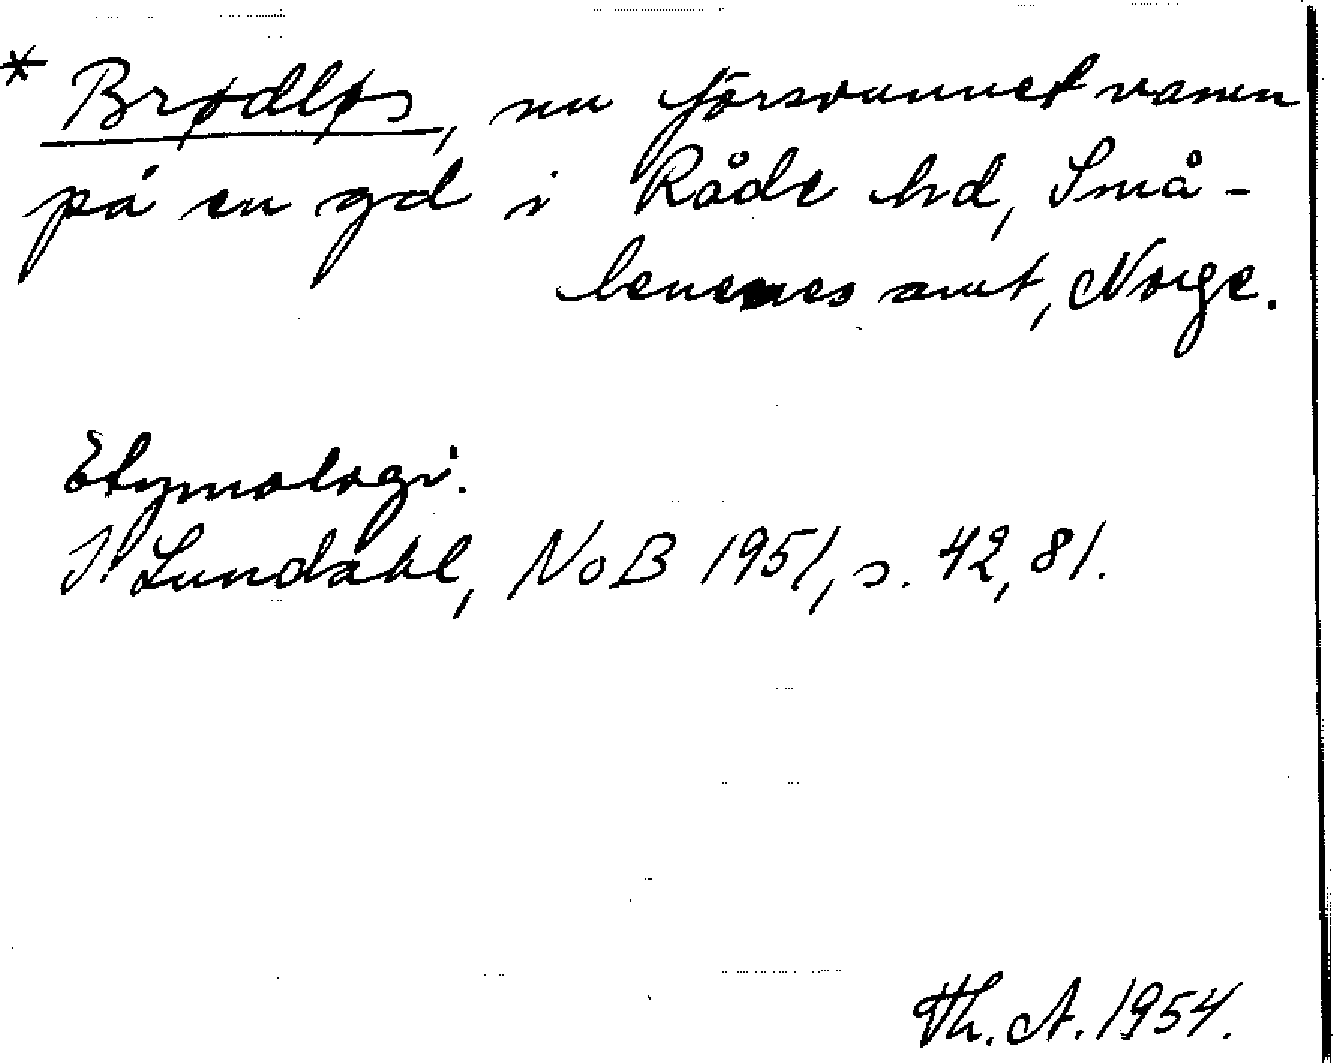 * Brødløs, nu försvunnet namn
på en gd i Råde hd, Små-
lenenes amt, Norge.
Etymologi.
I Lundahl, NoB 1951, s. 42, 81.
Th. A. 1954.